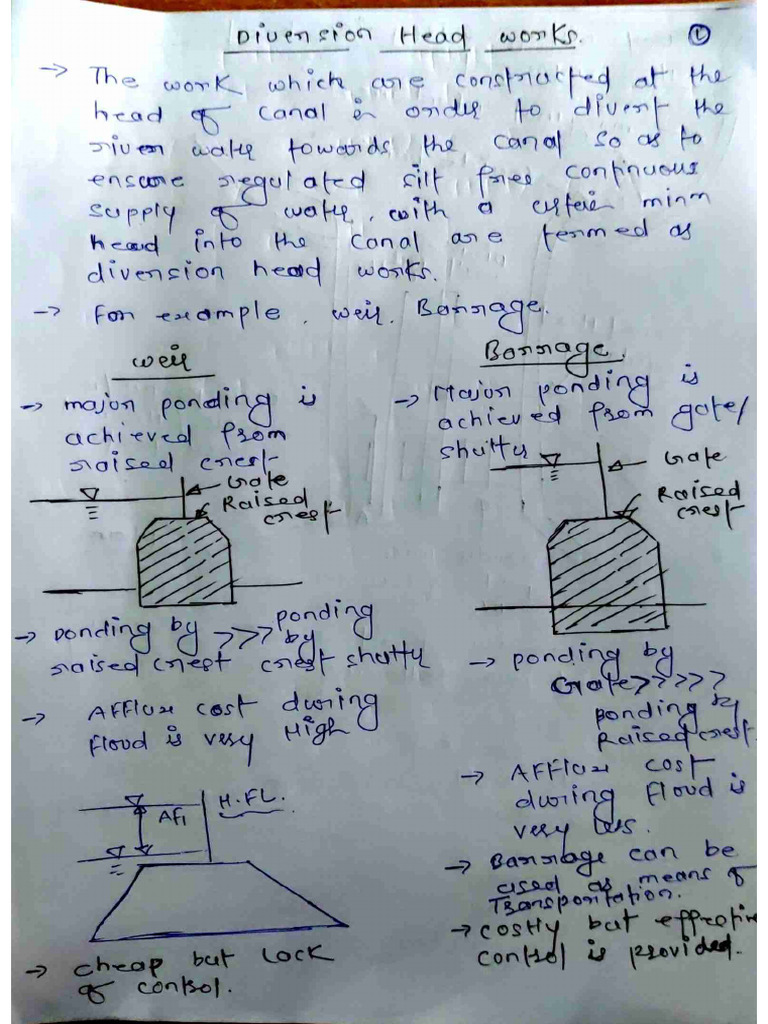 Diversion Head works.
①
→ The work which are constructed at the
head of canal in order to divert the
river water towards the canal so as to
ensure regulated silt free continuous
supply of water, with a certain minm
head into the canal are termed as
diversion head works.
→ For example, weir, Barrage.
weir
→ major ponding is
achieved from
raised crest
Gate
Raised
crest
→ Ponding by >>> ponding by
raised crest crest shutter
→ Afflux cost during
flood is very High
H.FL.
Af1
→ cheap but lack
of control.
Barrage.
→ Major ponding is
achieved from gate/
shutter
Gate
Raised
crest
→ Ponding by
Gate >>>>>
ponding by
Raised crest.
→ Afflux cost
during flood is
very less.
→ Barrage can be
used as means of
Transportation.
→ costly but effective
control is provided.